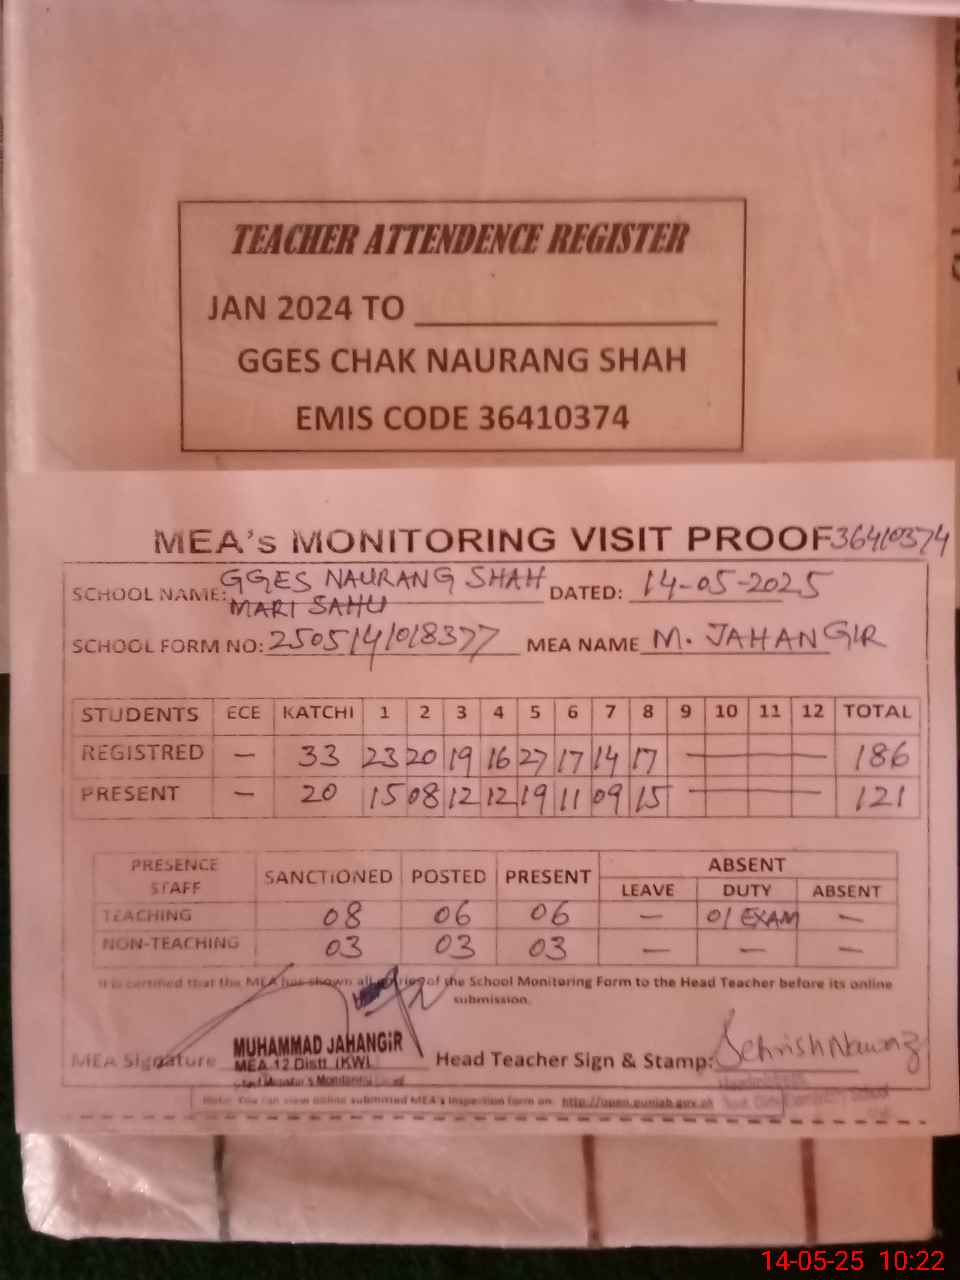 TEACHER ATTENDENCE REGISTER
JAN 2024 TO
GGES CHAK NAURANG SHAH
EMIS CODE 36410374
MEA's MONITORING VISIT PROOF 36410374
SCHOOL NAME: GGES NAURANG SHAH DATED: 14-05-2025
MARI SAHU
SCHOOL FORM NO: MEA NAME M. JAHANGIR
STUDENTS ECE KATCHI 1 2 3 4 5 6 7 8 9 10 11 12 TOTAL
REGISTRED — 33 23 20 19 16 27 17 14 17 — 186
PRESENT — 20 15 08 12 12 19 11 09 15 — 121
PRESENCE STAFF SANCTIONED POSTED PRESENT ABSENT
LEAVE DUTY ABSENT
TEACHING 08 06 06 — 01 EXAM —
NON-TEACHING 03 03 03 — — —
It is certified that the MEA has shown all of the School Monitoring Form to the Head Teacher before its online
submission.
MEA Signature MUHAMMAD JAHANGIR Head Teacher Sign & Stamp: Sehrish Nawaz
MEA 12 Distt. (KWL)
Chief Minister's Monitoring
Note: You can view online submitted MEA's inspection form on: http://open.punjab.gov.pk
14-05-25 10:22